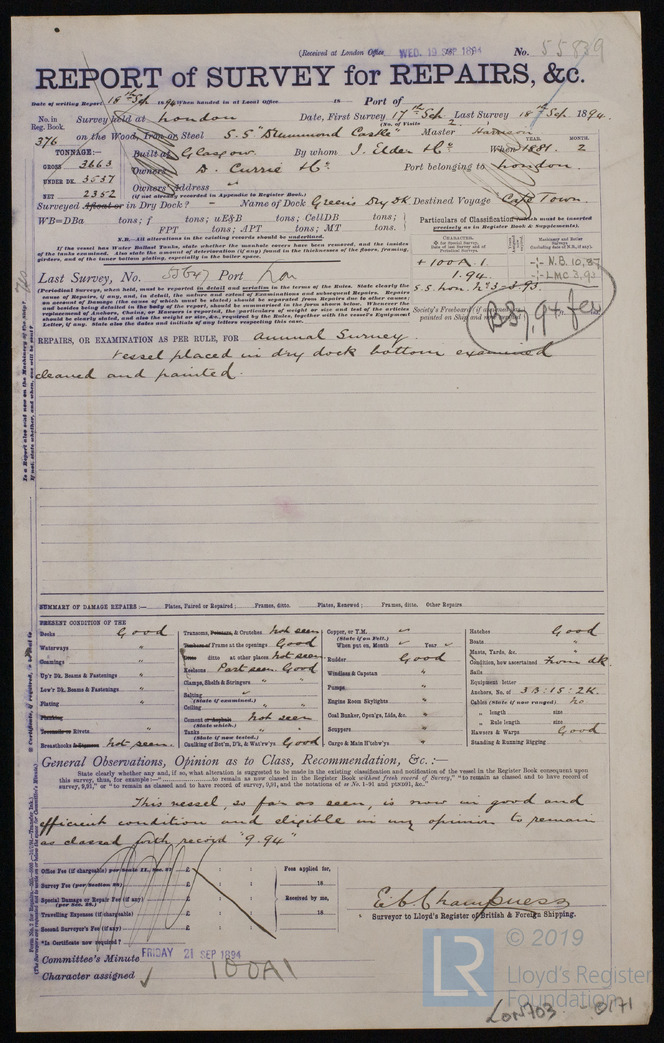 (Received at London Office WED. 19 SEP 1894 No. 55839
REPORT of SURVEY for REPAIRS, &c.
Date of writing Report 18th Sep 1894 When handed in at Local Office 18 Port of
No. in Reg. Book. Survey held at London Date, First Survey 17th Sep Last Survey 18th Sep 1894.
(No. of Visits 2
376 on the Wood, Iron or Steel S.S "Drummond Castle" Master Harrison
TONNAGE:— Built at Glasgow By whom J. Elder & Co. When 1881. YEAR. MONTH. 2
GROSS 3663 Owners D. Currie & Co. Port belonging to London.
UNDER DK. 3537 Owners' Address
NET 2352 (if not already recorded in Appendix to Register Book.)
Surveyed Afloat or in Dry Dock? - Name of Dock Green's Dry Dk Destined Voyage Cape Town.
WB=DBa tons; f tons; uE&B tons; CellDB tons;
FPT tons; APT tons; MT tons.
Particulars of Classification (which must be inserted precisely as in Register Book & Supplements).
N.B.—All alterations in the existing records should be underlined.
If the vessel has Water Ballast Tanks, state whether the manhole covers have been removed, and the insides
of the tanks examined. Also state the amount of deterioration (if any) found in the thicknesses of the floors, framing,
girders, and of the inner bottom plating, especially in the boiler space.
+ 100A.1. N.B. 10,87
1.94. LMC 3.91
Last Survey, No. 55647 Port Lon
S.S. Lon. No. 3 - 93.
(Periodical Surveys, when held, must be reported in detail and seriatim in the terms of the Rules. State clearly the
cause of Repairs, if any, and, in detail, the nature and extent of Examinations and subsequent Repairs. Repairs
on account of Damage (the cause of which must be stated) should be separated from Repairs due to other causes;
and besides being detailed in the body of the report, should be summarised in the form shown below. Whenever the
replacement of Anchors, Chains, or Hawsers is reported, the particulars of weight or size and test of the articles
should be clearly stated, and also the weight or size, &c., required by the Rules, together with the vessel's Equipment
Letter, if any. State also the dates and initials of any letters respecting this case.)
REPAIRS, OR EXAMINATION AS PER RULE, FOR Annual Survey.
Vessel placed in dry dock bottom examined
cleaned and painted.
SUMMARY OF DAMAGE REPAIRS:— Plates, Faired or Repaired; Frames, ditto. Plates, Renewed; Frames, ditto. Other Repairs
PRESENT CONDITION OF THE
Decks Good
Waterways "
Coamings "
Up'r Dk. Beams & Fastenings "
Low'r Dk. Beams & Fastenings "
Plating "
Planking
Treenails or Rivets "
Breasthooks & Pointers Not seen
Transoms, Pointers, & Crutches Not seen
Timbers of Frame at the openings Good
Ditto ditto at other places Not seen
Keelsons Part seen Good
Clamps, Shelfs & Stringers "
Salting
(State if examined.)
Ceiling "
Cement or Asphalt Not seen
(State which.)
Tanks "
(State if now tested)
Caulking of Bot'm, D'k, & Wat'rw'ys Good
Copper, or Y.M.
(State if on Felt.)
When put on, Month Year
Rudder Good
Windlass & Capstan "
Pumps "
Engine Room Skylights "
Coal Bunker, Open'gs, Lids, &c. "
Scuppers "
Cargo & Main H'tchw'ys "
Hatches Good
Boats "
Masts, Yards, &c. "
Condition, how ascertained From dk.
Sails
Equipment letter
Anchors, No. of 3B: 1S: 2K.
Cables (State if now ranged) No
" length size
" Rule length size
Hawsers & Warps Good
Standing & Running Rigging "
General Observations, Opinion as to Class, Recommendation, &c.:—
State clearly whether any and, if so, what alteration is suggested to be made in the existing classification and notification of the vessel in the Register Book consequent upon
This vessel, so far as seen, is now in good and
efficient condition and eligible in my opinion to remain
as classed with record "9.94"
Office Fee (if chargeable) £ : : Fees applied for,
Survey Fee (per Section 28) £ : : 18
Special Damage or Repair Fee (if any) £ : : Received by me,
(per Sec. 28.)
Travelling Expenses (if chargeable) £ : : 18
Second Surveyor's Fee (if any) £ : :
*Is Certificate now required?
E. C. Champness
Surveyor to Lloyd's Register of British & Foreign Shipping.
Committee's Minute FRIDAY 21 SEP 1894
Character assigned 100A1
© 2019
LR
Lloyd's Register
Foundation
LON703 - 0171